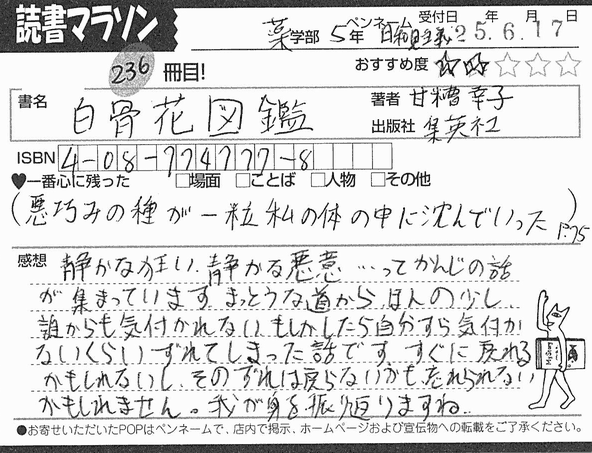 読書マラソン
薬学部 5年 ペンネーム 日和見主義 受付日 25年6月17日
236冊目!
おすすめ度 ☆☆☆☆☆
書名 白骨花図鑑
著者 甘糟幸子
出版社 集英社
ISBN 4-08-774777-8
♥一番心に残った □場面 □ことば □人物 □その他
(悪巧みの種が一粒私の体の中に沈んでいった) P.75
感想 静かな狂い、静かなる悪意…ってかんじの話
が集まっています。まっとうな道から、ほんの少し、
誰からも気付かれない、もしかしたら自分すら気付か
ないくらいずれてしまった話です。すぐに戻れる
かもしれないし、そのずれは戻らないかも、忘れられない
かもしれません。我が身を振り返りますね…
●お寄せいただいたPOPはペンネームで、店内で掲示、ホームページおよび宣伝物への転載をご了承ください。